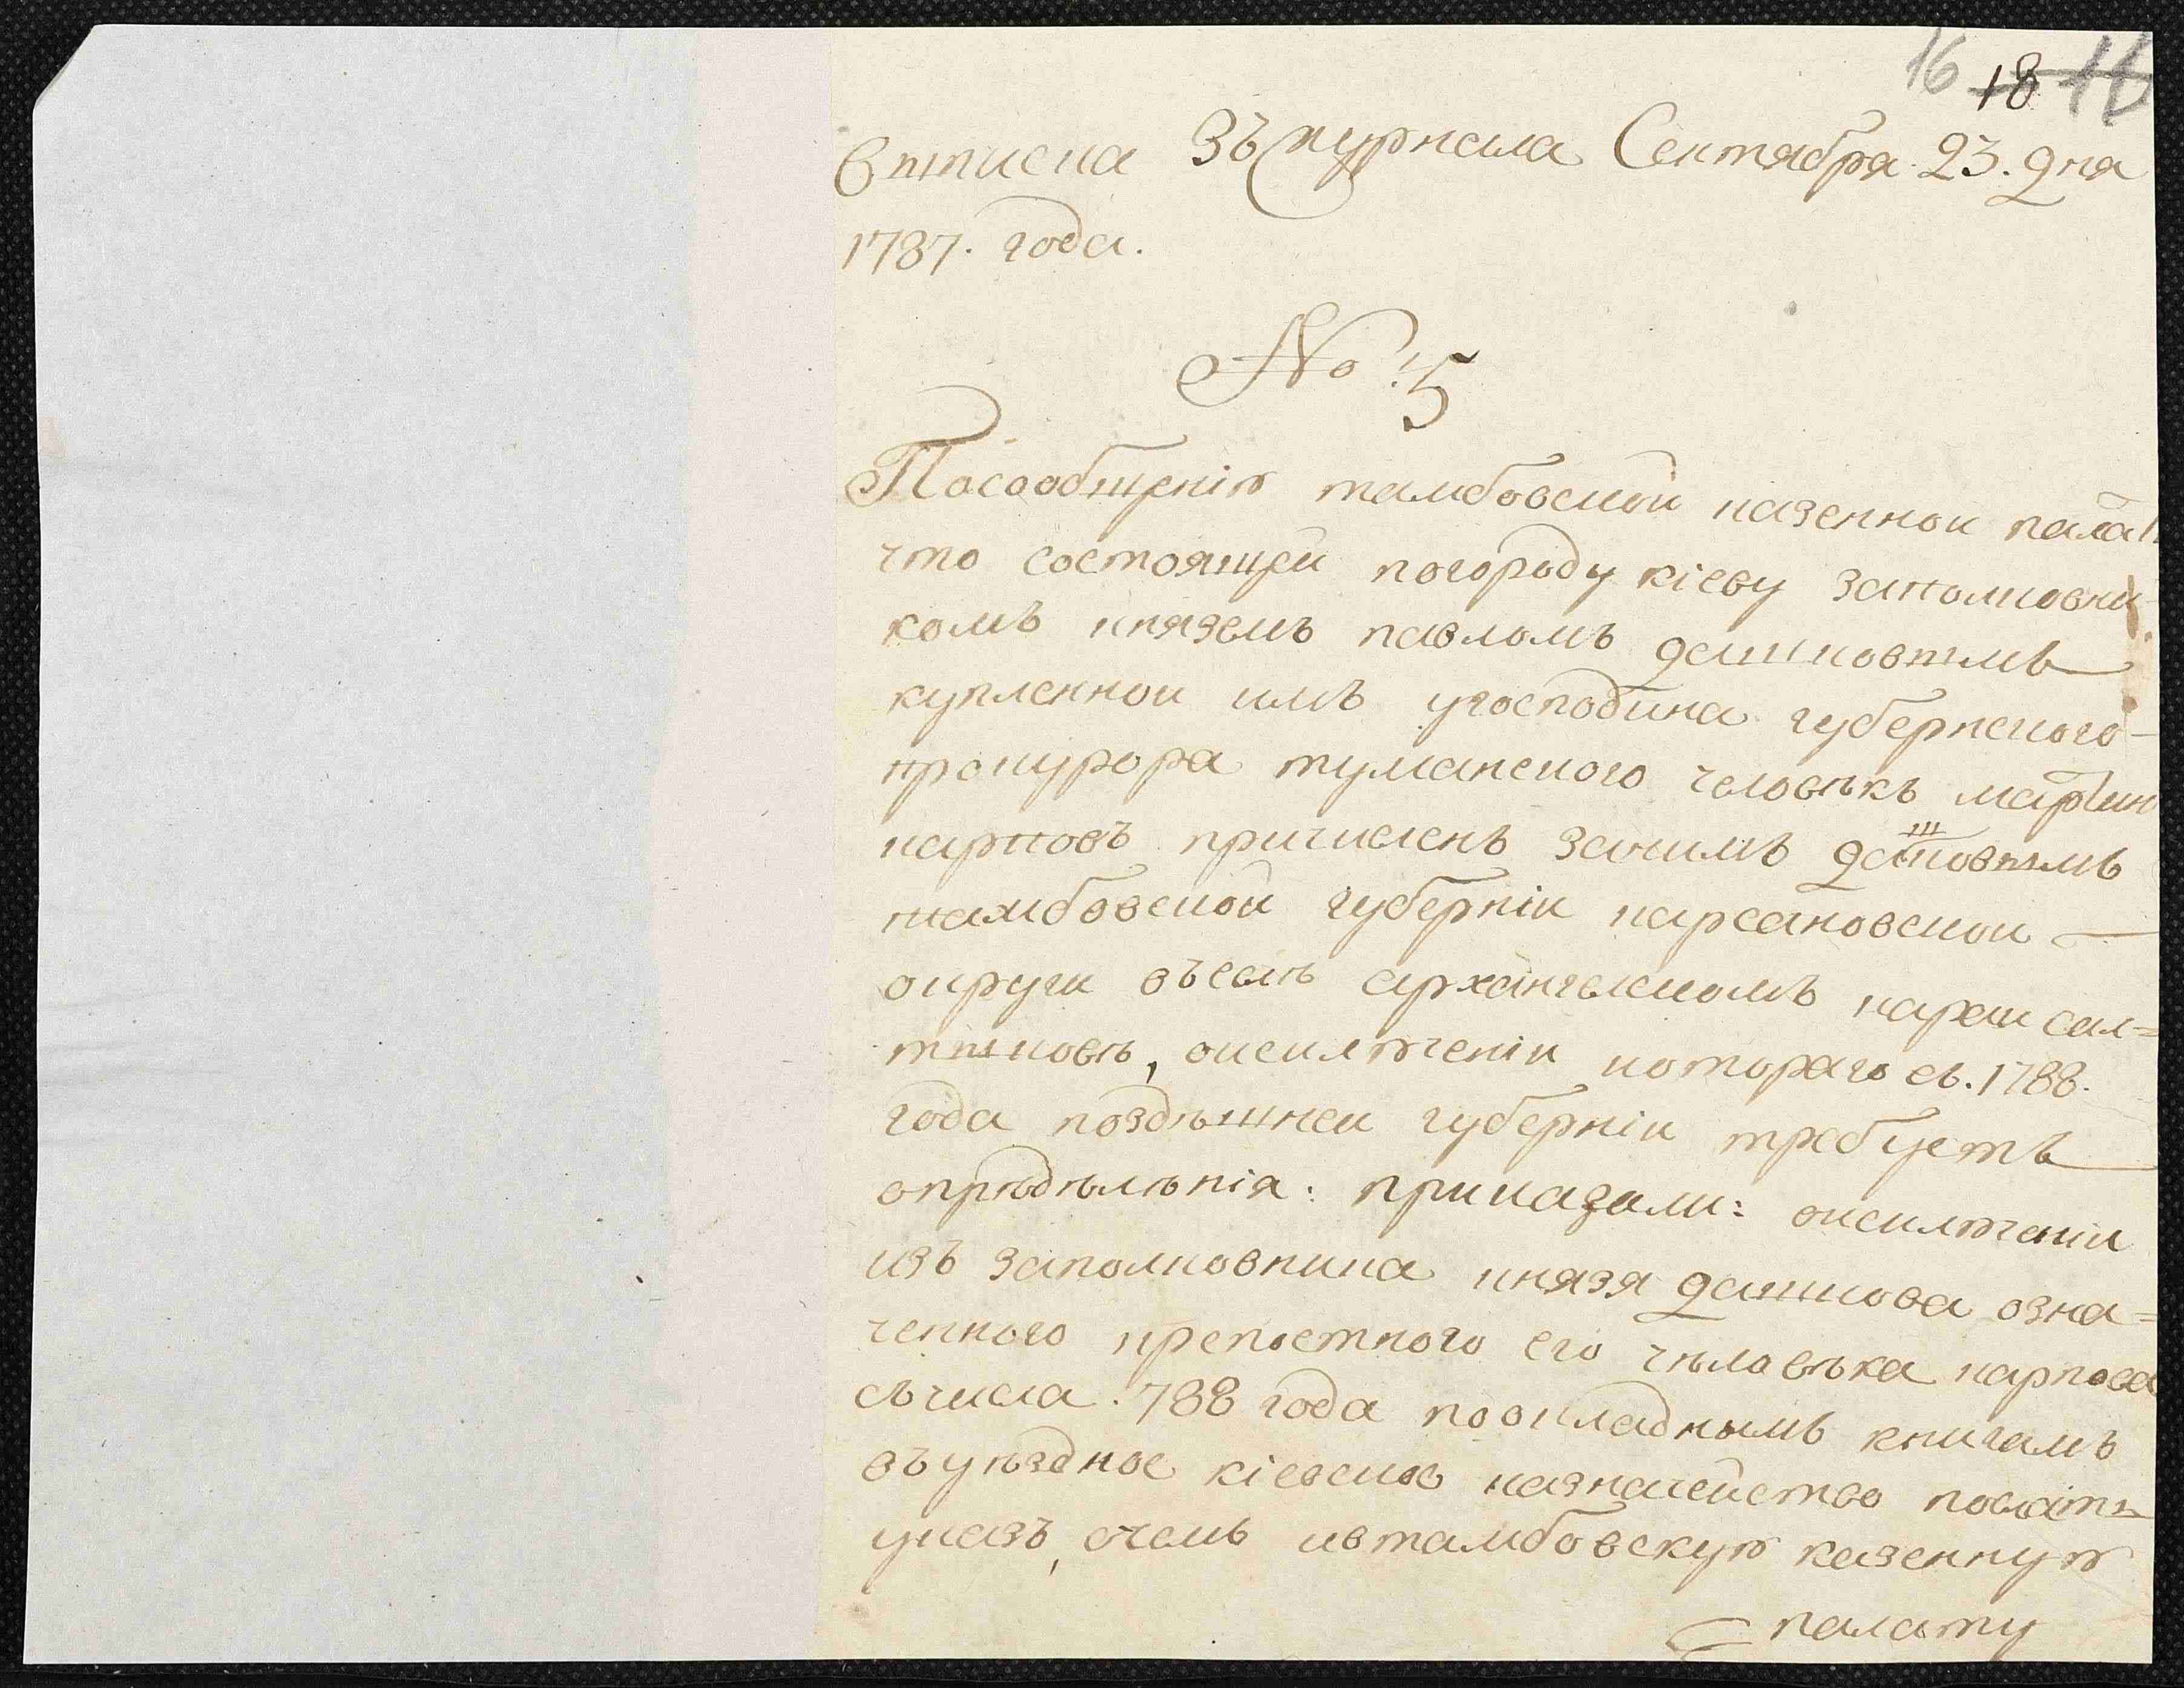 16 18 16
Выписка Зъжурнала Сентября 23. дня
1787. года.
№ 5
Посообщенію тамбовской казеннои пала
что состоящеи погороду кіеву заполковни
комъ княземъ павломъ дашковымъ
купленнои имъ угосподина губернского
прокурора туманского человѣкъ мартин
карповъ причисленъ занимъ дашковымъ
тамбовской губерніи кирсановскои
округи въселѣ архангелскомъ караи сал=
тыковѣ, оисключеніи котораго съ. 1788.
года поздѣшнеи губерніи требуетъ
опрѣдѣлѣнія. приказали: оисключеніи
изъ заполковника князя дашкова озна=
ченного крепостного его чѣловѣка карпова
съчисла. 788 года поокладнымъ книгамъ
въуѣздное кіевское казначейство послать
указъ, очемъ ивтамбовскую казенную
палату